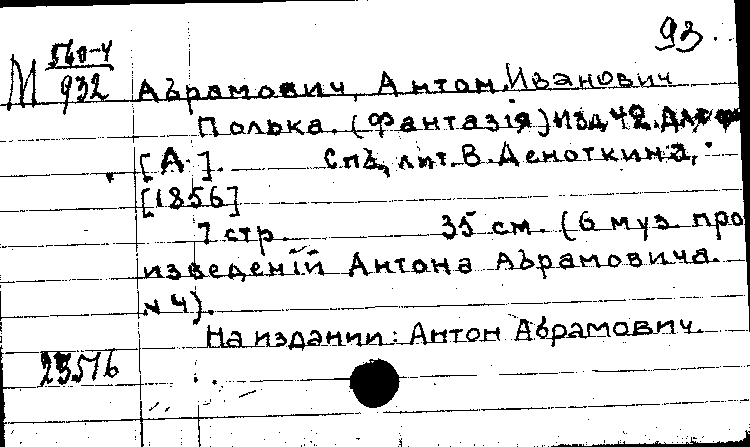 93.
М 560-4
932
Абрамович, Антон Иванович
Полька. (Фантазiя)
[А.]. Спб., лит. В. Деноткина,
[1856]
7 стр. 35 см. (6 муз. про
изведенiй Антона Абрамовича.
№ 4).
На издании: Антон Абрамович.
23516